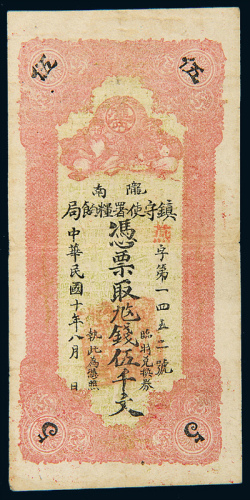 伍
伍
隴南
鎮守使署糧餉局
字第一四五二號
憑票取兌錢伍千文
臨時兌換券
執此為憑照
中華民國十年八月　日
5
5